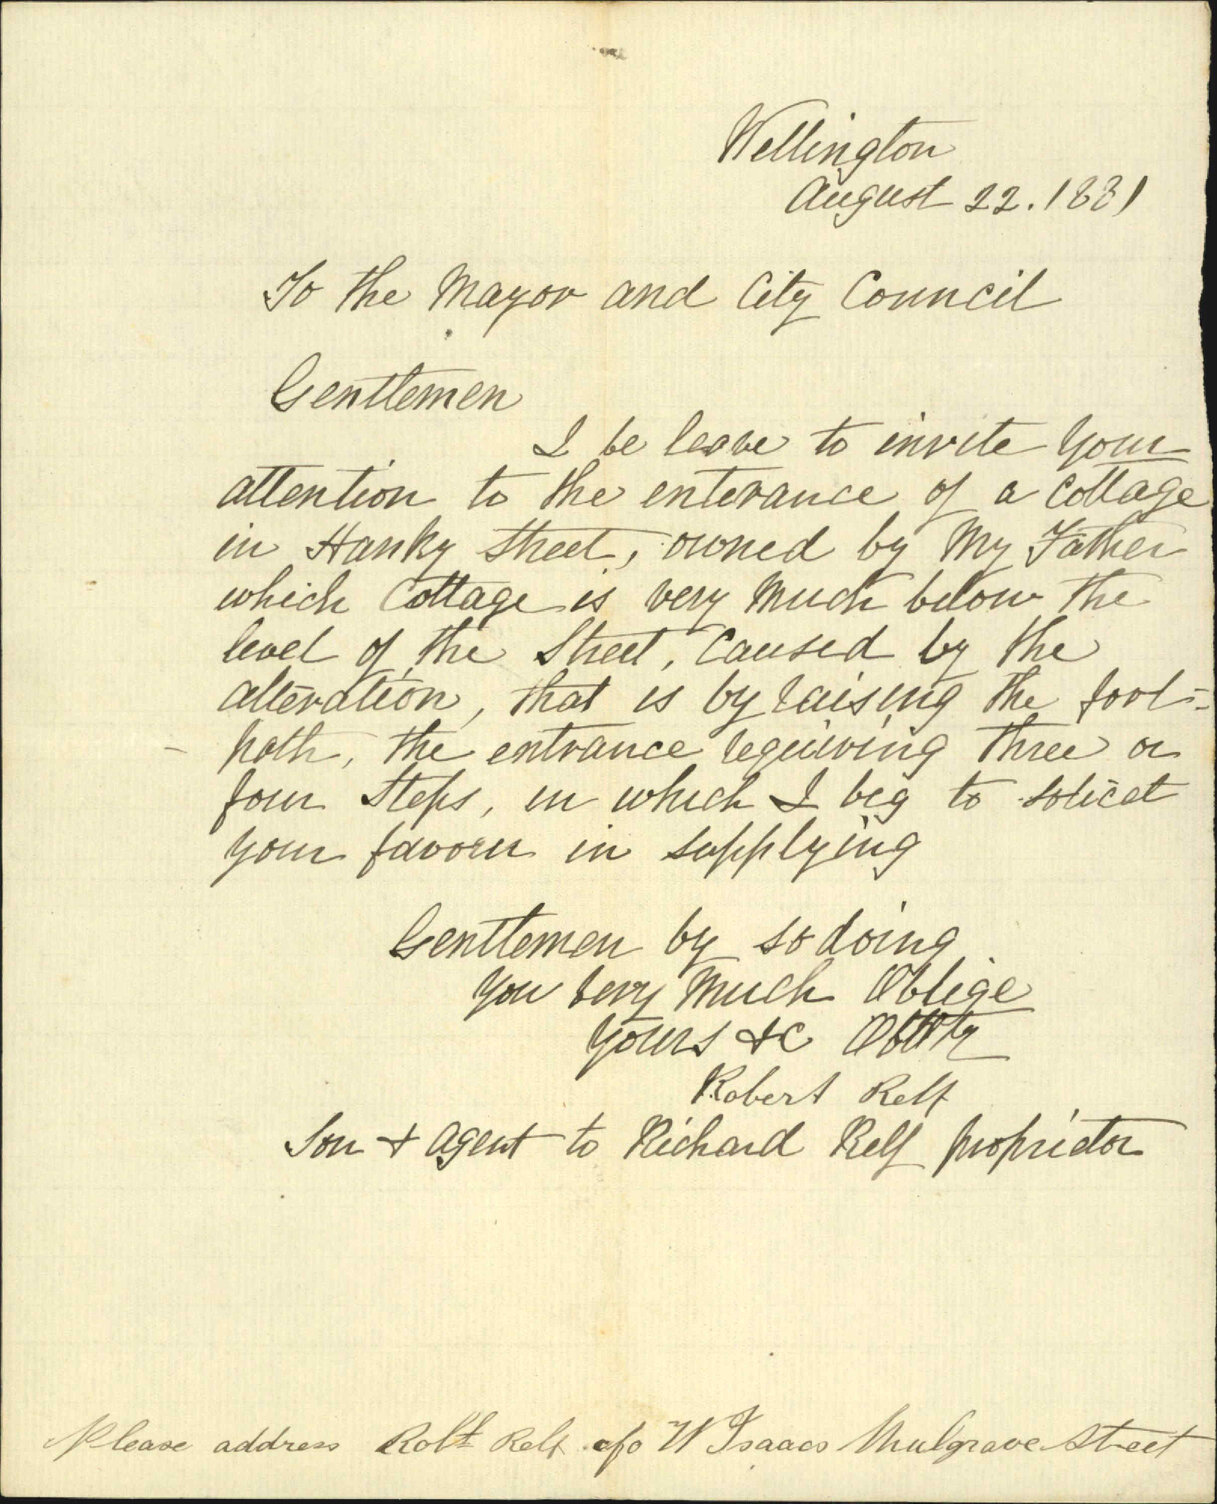 Wellington
August 22. 1881
To the Mayor and City Council
Gentlemen
I be leave to invite your
attention to the enterance of a Cottage
in Hanky Street, owned by My Father
which Cottage is very Much below the
level of the Street, Caused by the
alteration, that is by raising the foot=
path, the entrance requiring three or
four Steps, in which I beg to solicit
your favour in supplying
Gentlemen by so doing
You Very Much Oblige
Yours &c
Robert Relf
Son & Agent to Richard Relf proprietor
Please address Robt Relf c/o W Isaacs Mulgrave Street